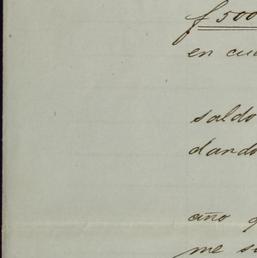 f 500
en cu
saldo
dando
año q
me s